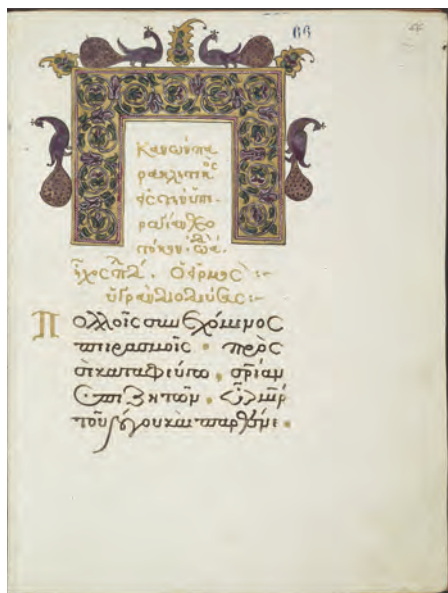 66
Κανὼν πα
ρακλιτικὸς
εἰς τὴν ὑπε
ραγίαν Θεο
τόκον. ᾠδὴ α.
ἦχος πλ δ. Ὁ εἱρμὸς :-
ὑγρὰν διοδεύσας :-
Πολλοῖς συνεχόμενος
πειρασμοῖς · πρὸς
σὲ καταφεύγω, σρίαν
ἐπιζητῶν. ὦ μρ
τοῦ λόγου καὶ παρθένε.